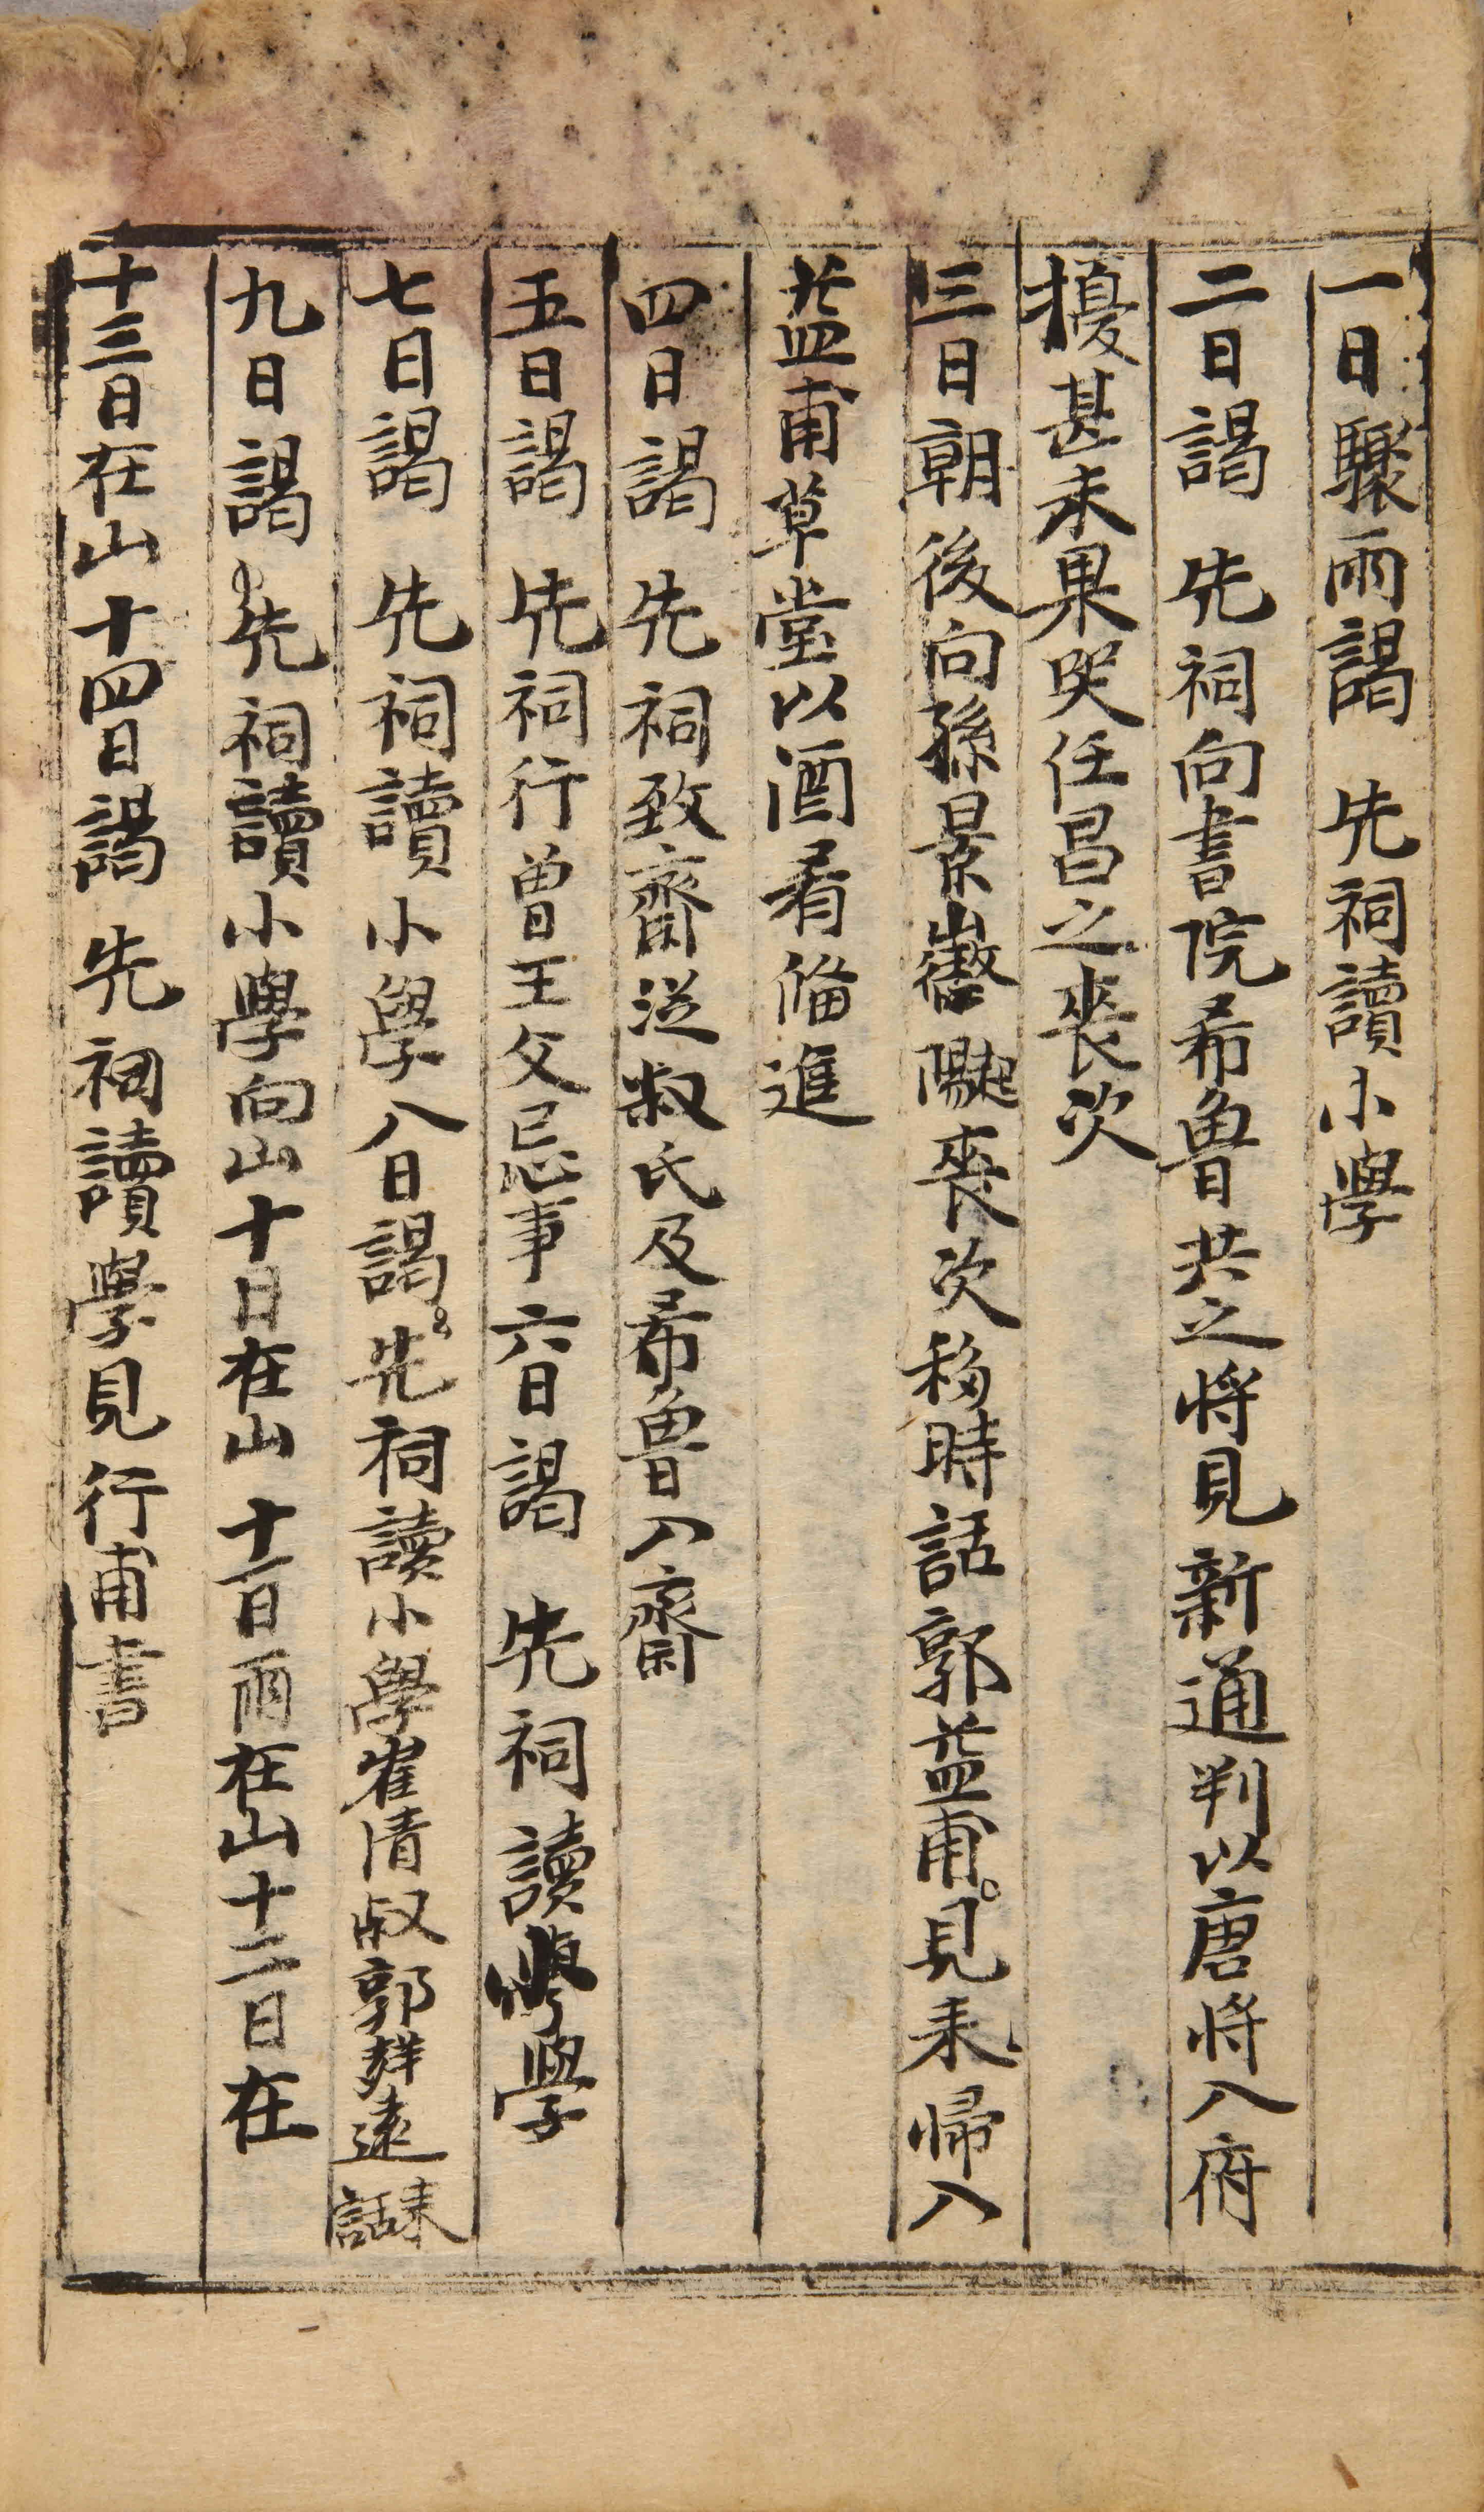 一日驟雨謁 先祠讀小學
二日謁 先祠向書院希魯共之將見新通判以唐將入府
擾甚未果哭任昌之喪次
三日朝後向孫景嶶喪次移時話郭益甫見来歸入
益甫草堂以酒肴俻進
四日謁 先祠致齋從叔氏及希魯入齋
五日謁 先祠行曾王父忌事六日謁 先祠讀學
七日謁 先祠讀小學八日謁先祠讀小學崔淸叔郭遠来話
九日謁先祠讀小學向山十日在山十一日雨在山十二日在
十三日在山十四日謁 先祠讀學見行甫書